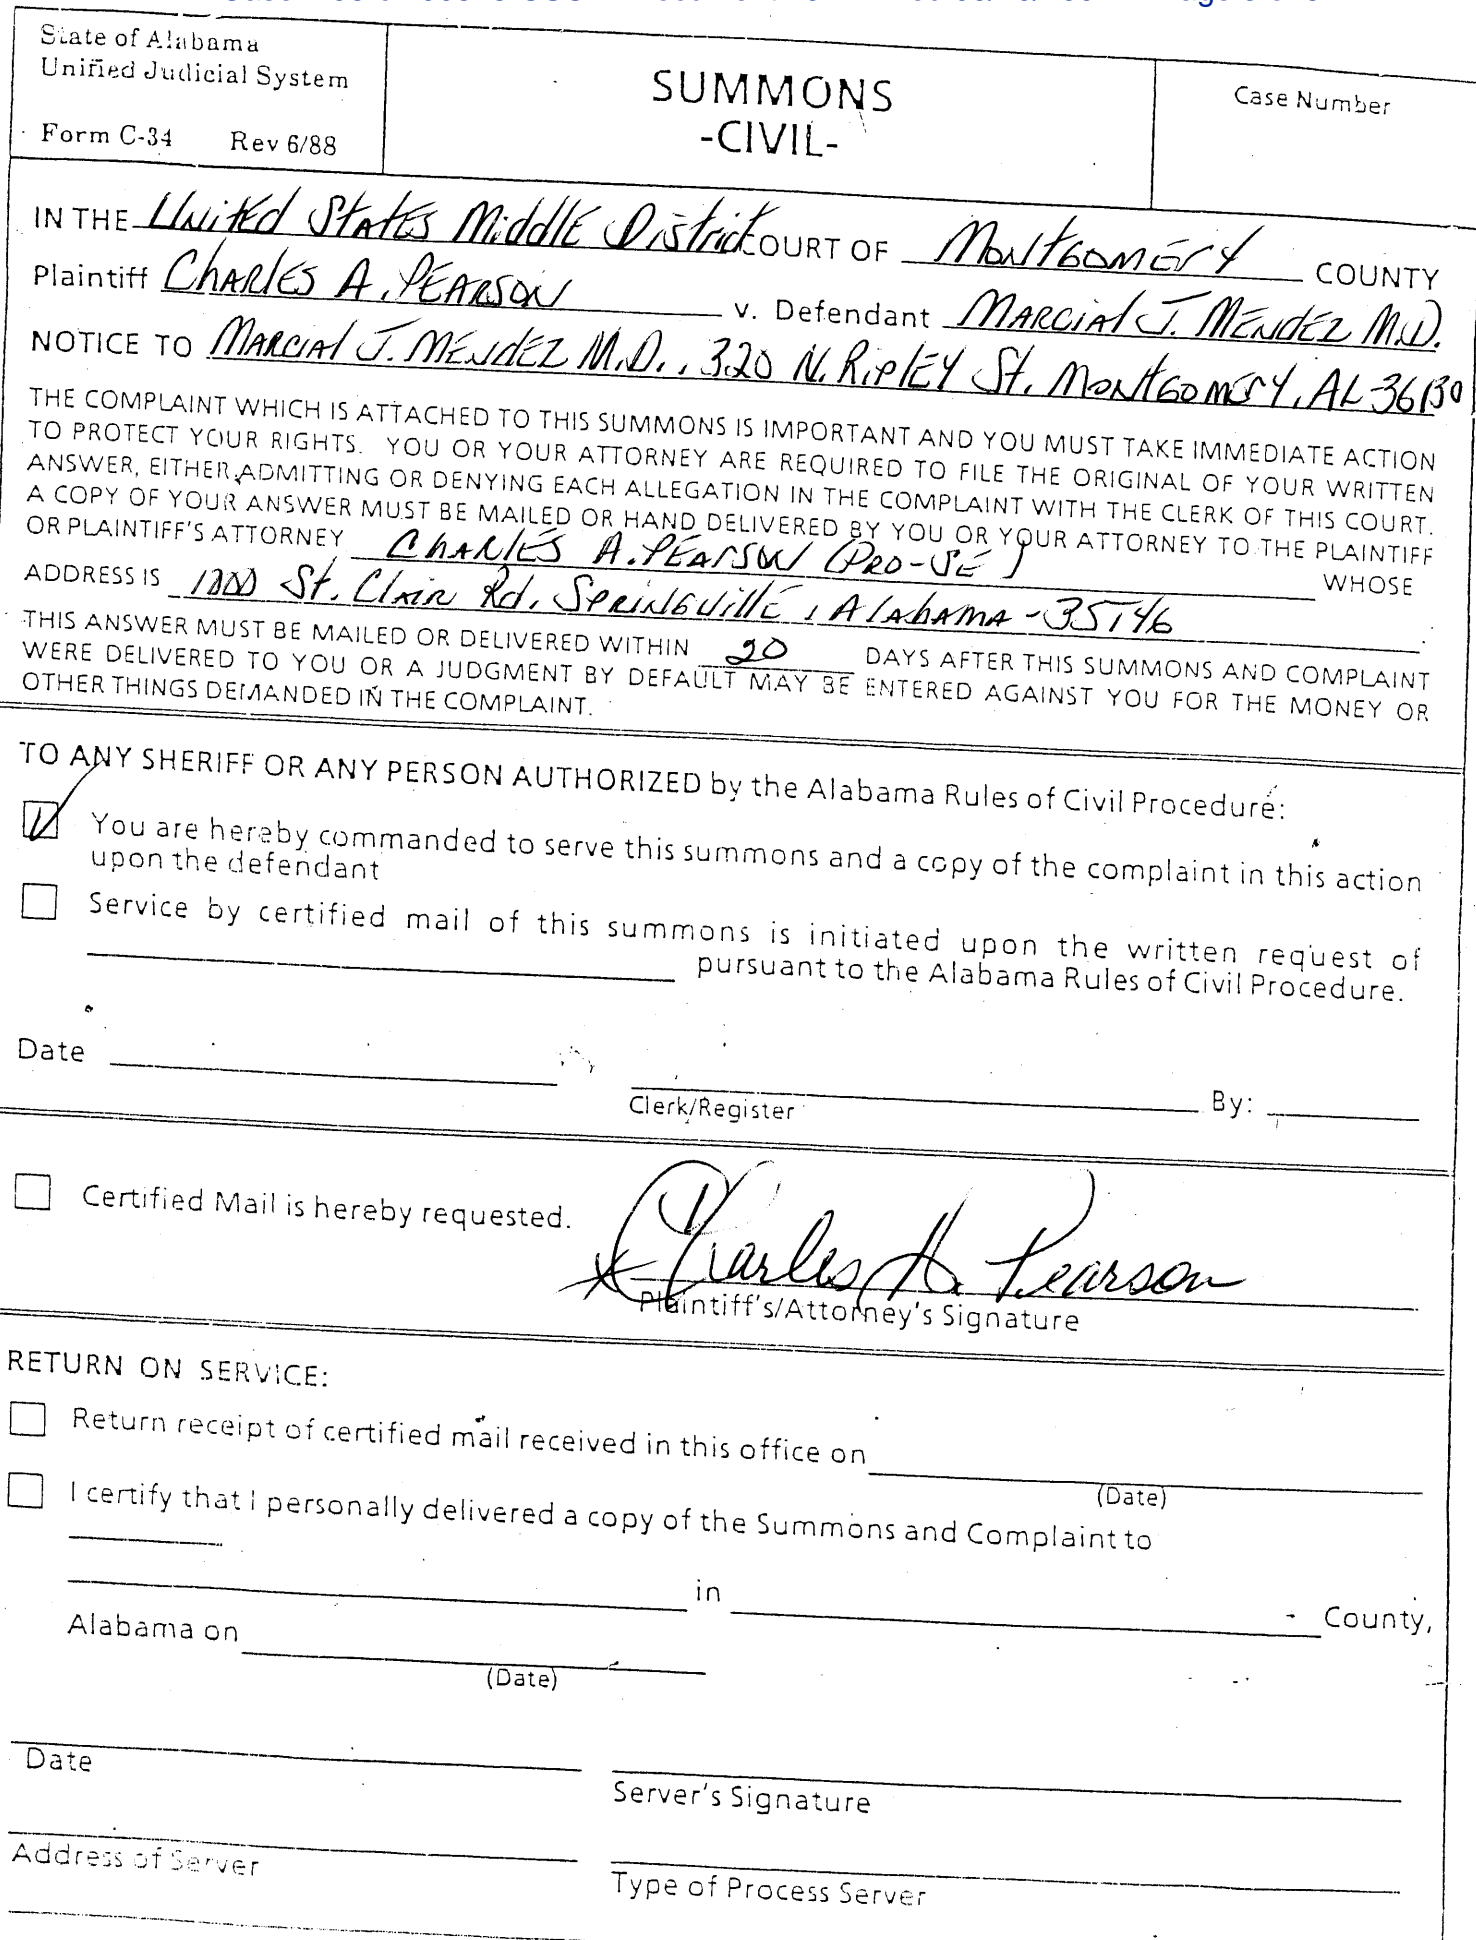 State of Alabama
Unified Judicial System
Form C-34 Rev 6/88
SUMMONS
-CIVIL-
Case Number
IN THE United States Middle District COURT OF Montgomery COUNTY
Plaintiff Charles A. Pearson v. Defendant Marcial J. Mendez M.D.
NOTICE TO Marcial J. Mendez M.D., 320 N. Ripley St. Montgomery, AL 36130
THE COMPLAINT WHICH IS ATTACHED TO THIS SUMMONS IS IMPORTANT AND YOU MUST TAKE IMMEDIATE ACTION
TO PROTECT YOUR RIGHTS. YOU OR YOUR ATTORNEY ARE REQUIRED TO FILE THE ORIGINAL OF YOUR WRITTEN
ANSWER, EITHER ADMITTING OR DENYING EACH ALLEGATION IN THE COMPLAINT WITH THE CLERK OF THIS COURT.
A COPY OF YOUR ANSWER MUST BE MAILED OR HAND DELIVERED BY YOU OR YOUR ATTORNEY TO THE PLAINTIFF
OR PLAINTIFF'S ATTORNEY Charles A. Pearson (Pro-Se) WHOSE
ADDRESS IS 1000 St. Clair Rd. Springville, Alabama - 35146
THIS ANSWER MUST BE MAILED OR DELIVERED WITHIN 20 DAYS AFTER THIS SUMMONS AND COMPLAINT
WERE DELIVERED TO YOU OR A JUDGMENT BY DEFAULT MAY BE ENTERED AGAINST YOU FOR THE MONEY OR
OTHER THINGS DEMANDED IN THE COMPLAINT.
TO ANY SHERIFF OR ANY PERSON AUTHORIZED by the Alabama Rules of Civil Procedure:
You are hereby commanded to serve this summons and a copy of the complaint in this action
upon the defendant
Service by certified mail of this summons is initiated upon the written request of
pursuant to the Alabama Rules of Civil Procedure.
Date
Clerk/Register
By:
Certified Mail is hereby requested.
Charles A. Pearson
Plaintiff's/Attorney's Signature
RETURN ON SERVICE:
Return receipt of certified mail received in this office on
(Date)
I certify that I personally delivered a copy of the Summons and Complaint to
in County,
Alabama on
(Date)
Date
Server's Signature
Address of Server
Type of Process Server